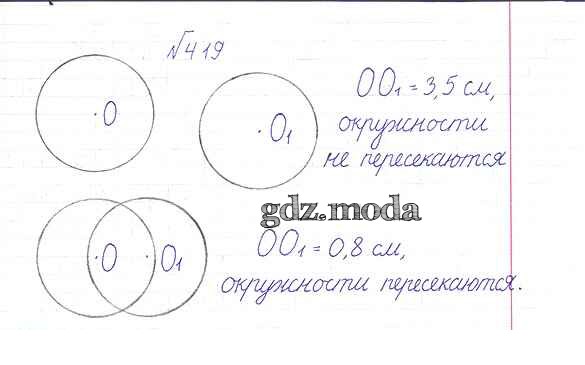 №419
O
O₁
OO₁ = 3,5 см,
окружности
не пересекаются
gdz.moda
O
O₁
OO₁ = 0,8 см,
окружности пересекаются.